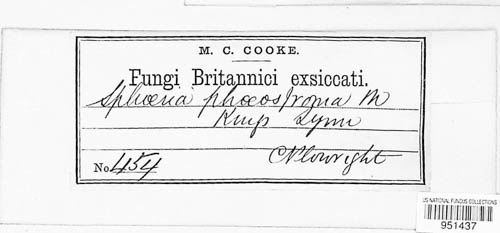 M. C. COOKE.
Fungi Britannici exsiccati.
Sphæria phæostroma M
Kings Lynn
No. 454
C Plowright
US NATIONAL FUNGUS COLLECTIONS
951437